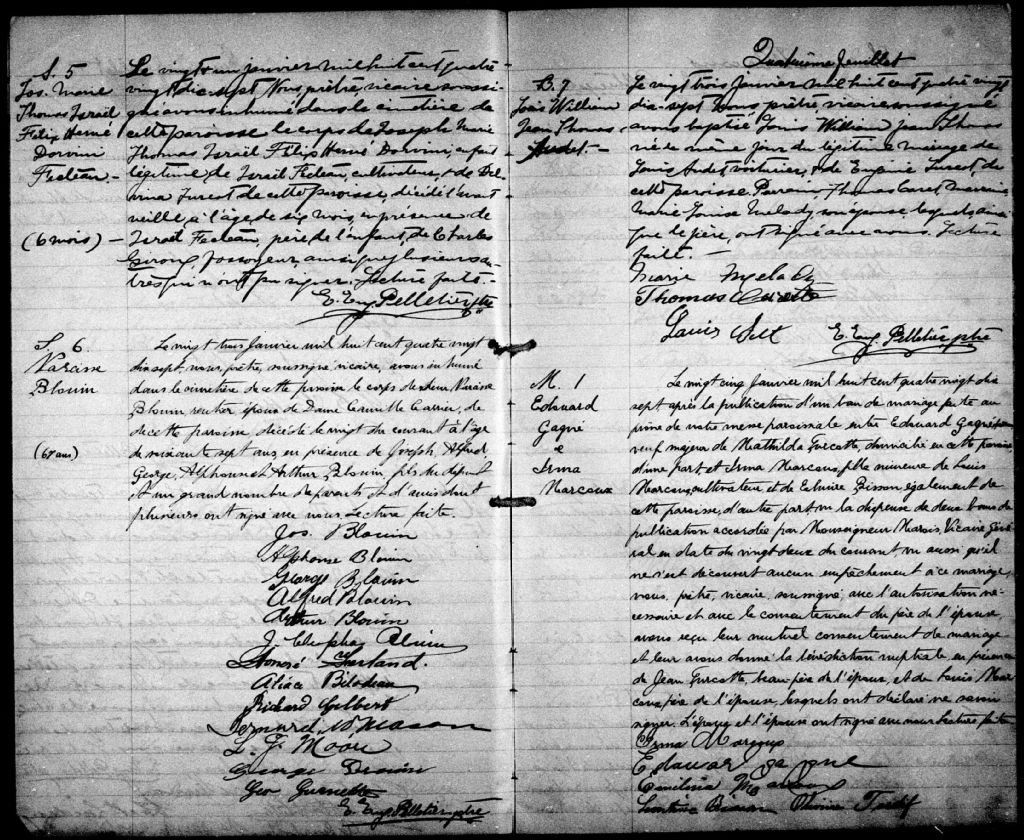 S. 5
Jos. Marie
Thomas Israël
Félix Hervé
Dorvini
Fecteau.—
(6 mois) —
Le vingt-un janvier mil huit cent quatre
vingt dix-sept Nous prêtre, vicaire soussi-
gné avons inhumé dans le cimetière de
cette paroisse le corps de Joseph Marie
Thomas Israël Félix Hervé Dorvini, enfant
légitime de Israël Fecteau, cultivateur, & de Del-
vina Turcot de cette paroisse, décédé l'avant
veille, à l'âge de six mois, en présence de
Israël Fecteau, père de l'enfant, de Charles
Giroux, fossoyeur, ainsi que plusieurs au-
tres qui n'ont pu signer. Lecture faite.—
E. Eug. Pelletier ptre
S. 6.
Narcisse
Blouin
(67 ans)
Le vingt trois Janvier mil huit cent quatre vingt
dix sept, nous, prêtre, soussigné, vicaire, avons inhumé
dans le cimetière de cette paroisse le corps de sieur Narcisse
Blouin rentier époux de Dame Camille Carrier, de
de cette paroisse, décédé le vingt du courant à l'âge
de soixante sept ans en présence de Joseph, Alfred,
George, Alphonse et Arthur Blouin, fils du défunt
et un grand nombre de parents et d'amis dont
plusieurs ont signé avec nous Lecture faite.
Jos. Blouin
Alphonse Blouin
George Blouin
Alfred Blouin
Arthur Blouin
J. Cléophas Blouin
Honoré Ferland.
Alice Bilodeau
Richard Gilbert
Bernard Mason
L. J. Moore
George Drouin
Geo
E. Eug. Pelletier ptre
Quatrième feuillet
B. 7
Louis William
Jean Thomas
Audet.—
Le vingt trois janvier mil huit cent quatre vingt
dix-sept Nous prêtre vicaire soussigné
avons baptisé Louis William Jean Thomas
né le même jour du légitime mariage de
Louis Audet voiturier, & de Eugénie Turcot, de
cette paroisse Parrain, Thomas Marraine,
Marie-Louise Melady, son épouse, lesquels ainsi
que le père, ont signé avec nous. Lecture
faite.—
Marie Melady
Thomas
Louis Odet
E. Eug. Pelletier ptre
M. 1
Edouard
Gagné
&
Irma
Marcoux
Le vingt cinq Janvier mil huit cent quatre vingt dix
sept après la publication d'un ban de mariage faite au
prône de notre messe paroissiale entre Edouard Gagné
veuf majeur de Mathilda Turcotte, domicilié en cette paroisse
d'une part et Irma Marcoux, fille mineure de Louis
Marcoux, cultivateur, et de Bisson également de
cette paroisse, d'autre part vu la dispense de deux bans de
publication accordée par Monseigneur Marois, Vicaire Géné-
ral en date du vingt deux du courant vu aussi qu'il
ne s'est découvert aucun empêchement à ce mariage,
nous, prêtre, vicaire, soussigné, avec l'autorisation né-
cessaire et avec le consentement du père de l'épouse,
avons reçu leur mutuel consentement de mariage
et leur avons donné la bénédiction nuptiale en présence
de Jean Turcotte, beau-père de l'époux, et de Louis Mar-
coux, père de l'épouse, lesquels ont déclaré ne savoir
signer. L'époux et l'épouse ont signé avec nous lecture faite
Irma Marcoux
Edouar Gagne
Bisson Tardif